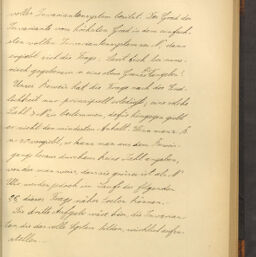 vollen Invariantensystem besitzt. Der Grad der
Invariante vom höchsten Grad in dem einfach-
sten vollen Invariantensystem sei N, dann
ergiebt sich die Frage, lässt sich bei
gegebenem n eine obere Grenze angeben?
Unser Beweis hat die Frage nach der End-
lichkeit nur principiell erledigt, eine solche
Zahl N zu bestimmen, dafür hingegen giebt
er nicht den mindesten Anhalt. Wenn man z. B.
n = vorgiebt, so kann man aus dem
durchaus keine Zahl angeben,
von der man weiss, dass sie grösser ist als N.
Wir werden jedoch im Laufe der folgenden
§§ dieser Frage näher treten können.
Die dritte Aufgabe wird sein, die Invarian-
ten, die das volle System bilden, wirklich aufzu-
stellen.